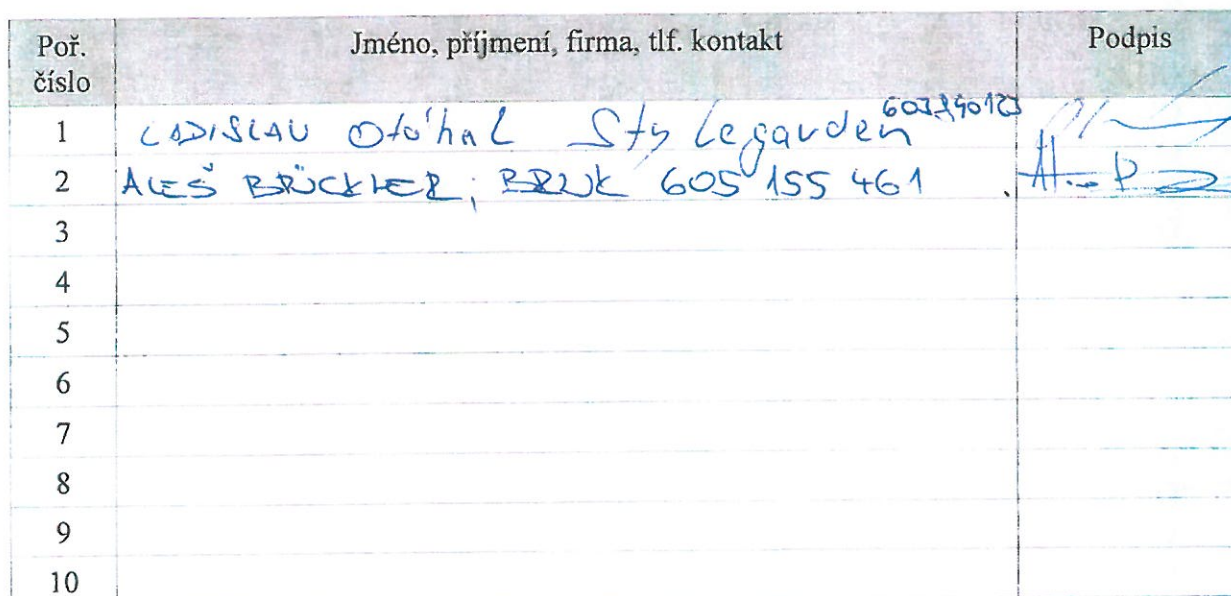 Poř. číslo Jméno, příjmení, firma, tlf. kontakt Podpis
1 LADISLAV Otáhal Stylegarden
2 ALEŠ BRÜCKNER, BRUK 605 155 461
3
4
5
6
7
8
9
10